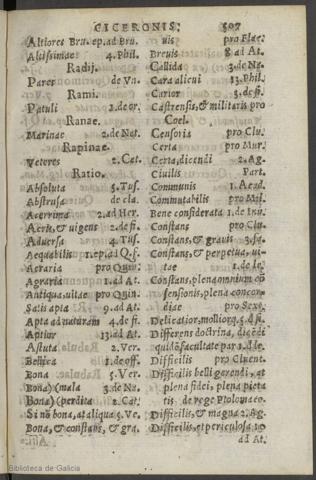 CICERONIS. 507
Altiores Bru. ep. ad Bru.
Altissimae 4. Phil.
Radij.
Pares de Vn.
Rami.
Patuli 2. de or.
Ranae.
Marinae 2. de Nat.
Rapinae.
Veteres 2. Cat.
Ratio.
Absoluta 5. Tus.
Abstrusa de cla.
Acerrima 2. ad Her.
Acris, & uigens 2. de fi.
Aduersa 4. Tus.
Aequabilis 1. epi. ad Q.f.
Aeraria pro Quin.
Agraria 1. ad At.
Antiqua, uitae pro Quin.
Satis apta 9. ad At.
Apta ad naturam 4. de fi.
Aptior 13. ad At.
Astuta 2. Ver.
Bellica 1. de off.
Bona 5. Ver.
Bona) (mala 3. de Na.
Bona) (perdita 2. Cat.
Si nõ bona, at aliqua 5. Ve.
Bona, & constans, & gra.
uis pro Flac.
Breuis 8. ad At.
Callida 3. de Na.
Cara alicui 13. Phil.
Carior 3. de fi.
Castrensis, & militaris pro
Coel.
Censoria pro Clu.
Certa pro Mur.
Certa, dicendi 2. Ag.
Ciuilis Part.
Communis 1. Acad.
Commutabilis pro Mil.
Bene considerata 1. de Inu.
Constans pro Clu.
Constans, & grauis
Constans, & perpetua, ui-
tae 1. de le.
Constans, plena omnium
sensionis, plena concor-
diae pro Sext.
Delicatior, molliorq. 5. d fi.
Differens doctrina,
quàdõ facultate par 2. de
Difficilis pro Cluent.
Difficilis belli gerendi, at
plena fidei, plena pieta
tis de rege Ptolomaeo.
Difficilis, & magna 2. Ag.
Difficilis, et periculosa 10
ad At.
Biblioteca de Galicia